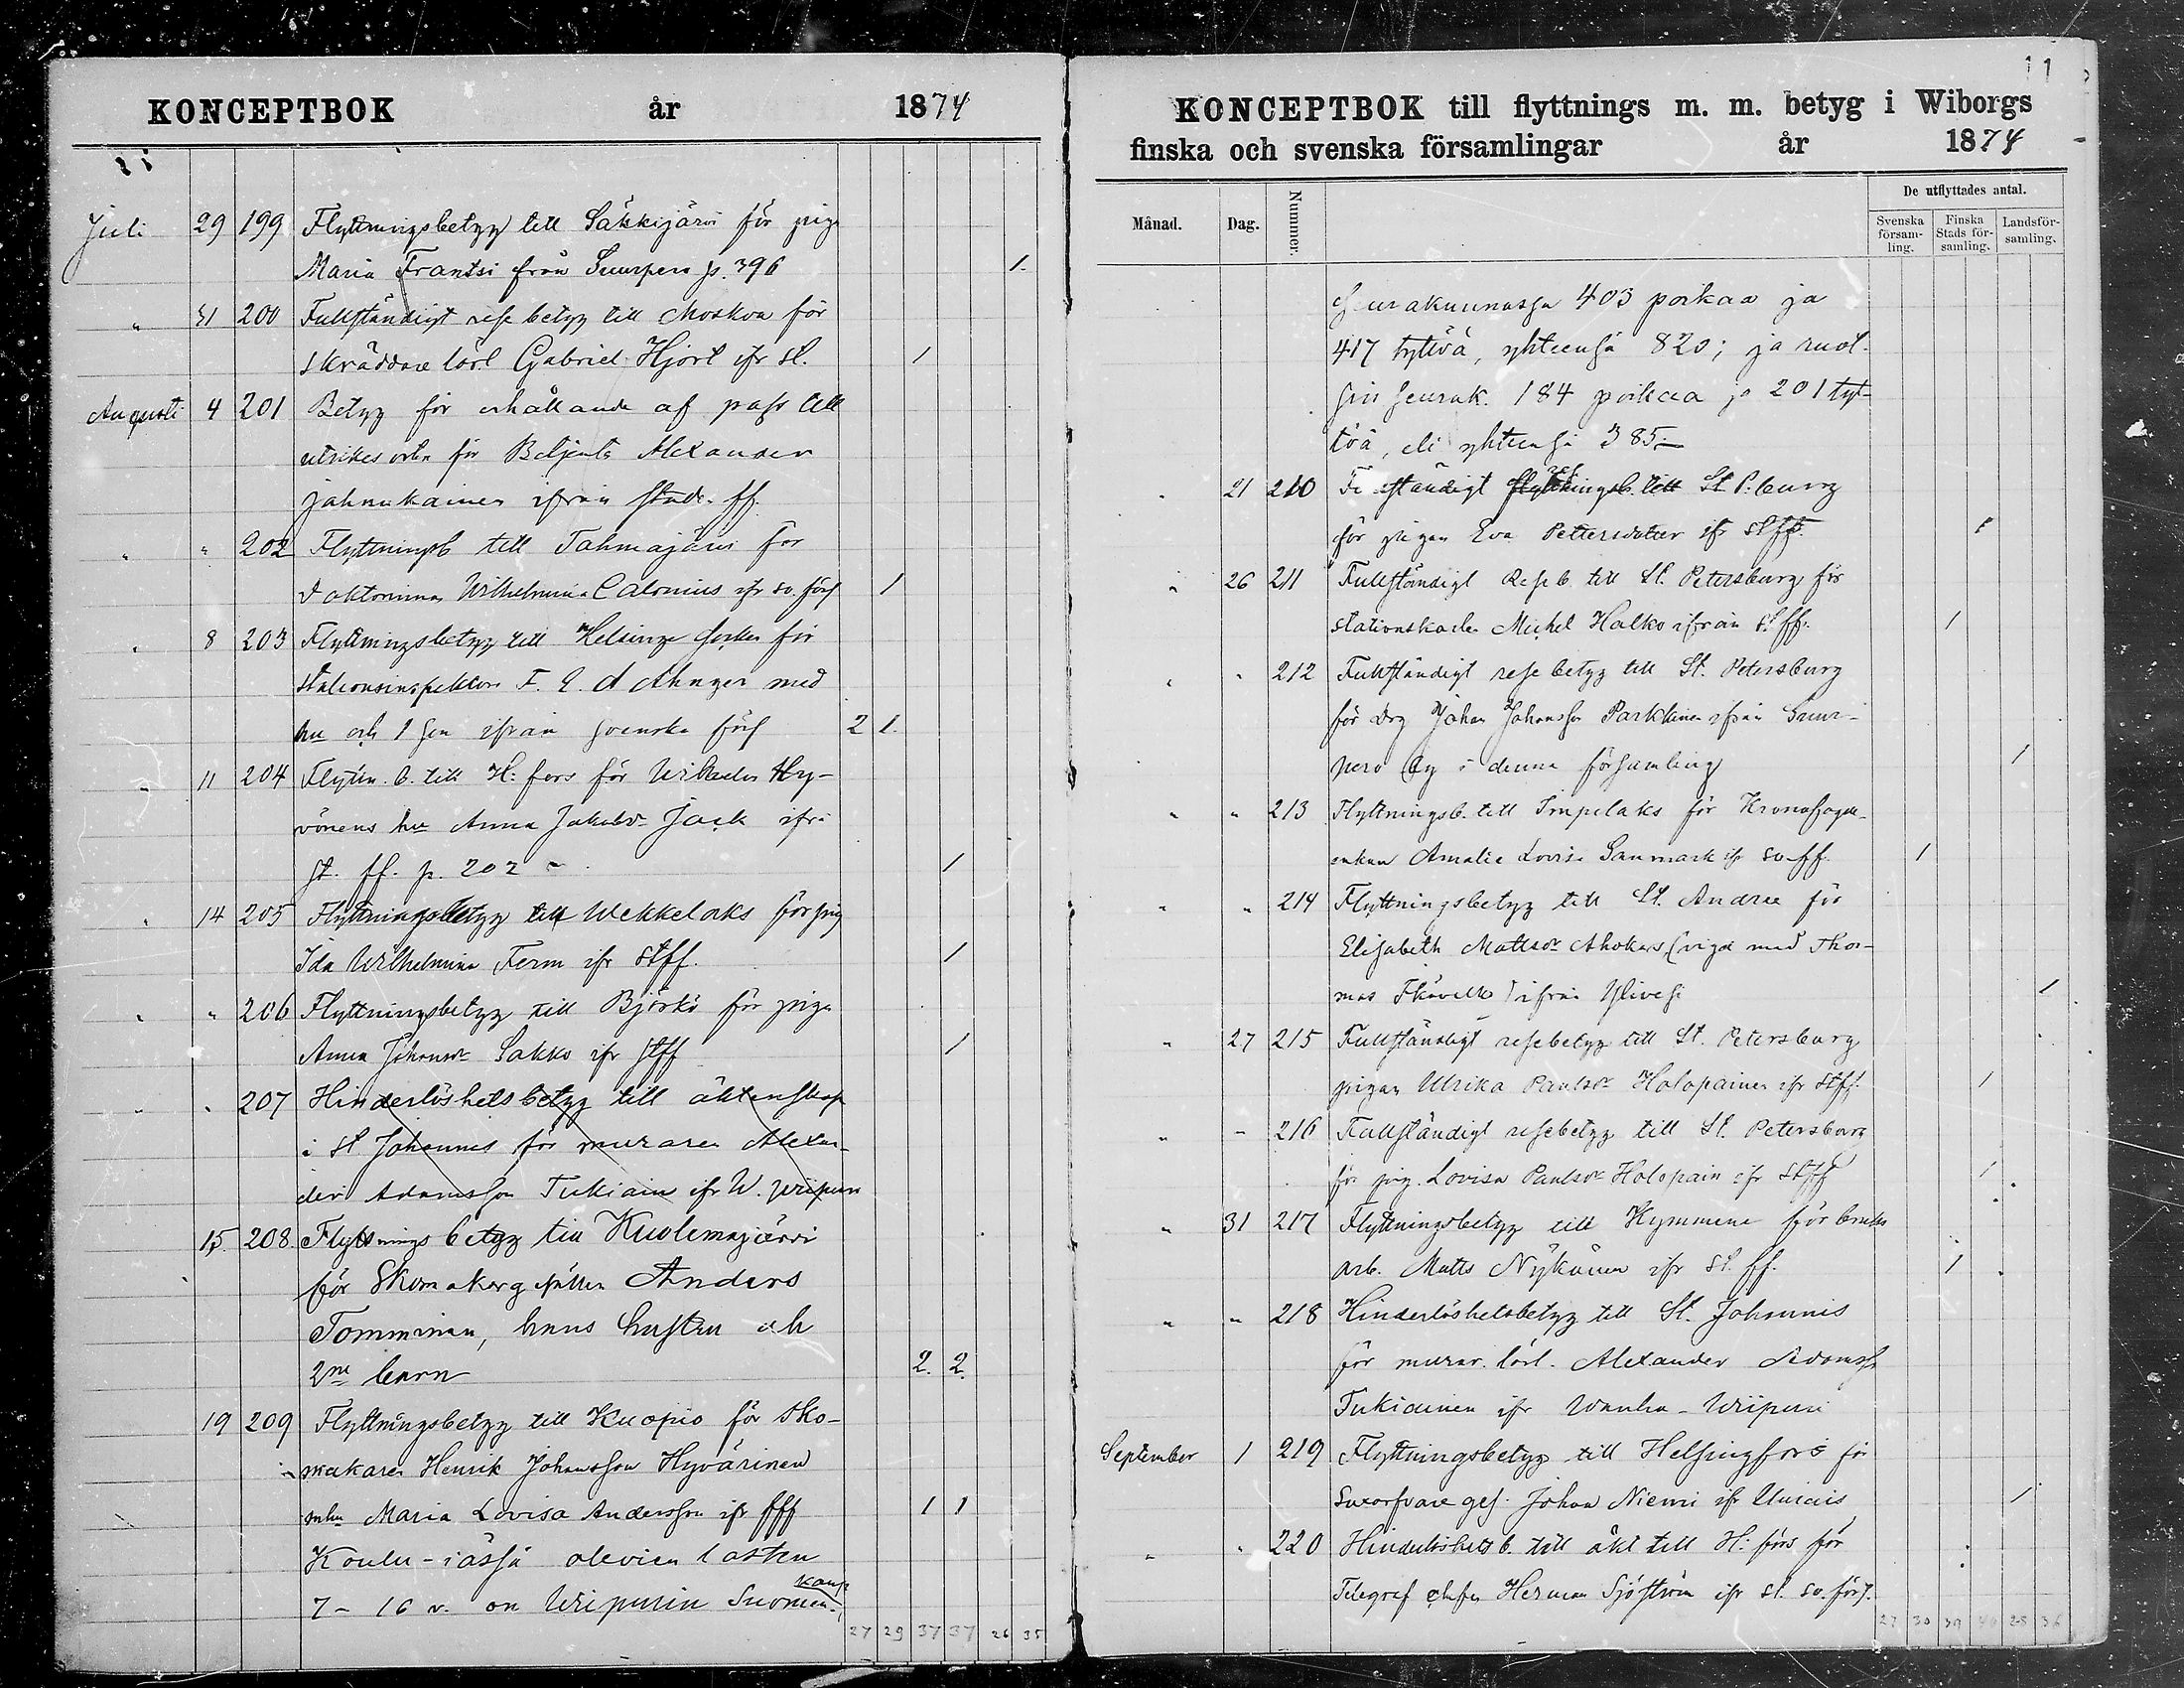 KONCEPTBOK år 1874
Juli 29 199 Flyttningsbetyg till Säkkijärvi för piga
Maria Frantsi från Suurpero p. 396 1.
" 31 200 Fullständigt rese betyg till Moskva för
skräddare lärl Gabriel Hjort ifr st. 1
Augusti 4 201 Betyg för erhållande af pass till
utrikes ort för Betjente Alexander
Jahnukainen ifrån stads ff.
" " 202 Flyttningsb till Tohmajärvi för
doktorinnan Wilhelmina Calonius ifr sv. förs 1
" 8 203 Flyttningsbetyg till Helsinge socken för
stationsinspektor F. E. A Ahnger med
hu och 1 son ifrån svenska förs 2 1.
" 11 204 Flyttn. b. till H:fors för Wilhelm Hy-
vönens hu Anna Jakobsdr Jack ifrå
st. ff. p. 202 1
" 14 205 Flyttningsbetyg till Wekkelaks för pig
Ida Wilhelmina Ferm ifr stff. 1
" " 206 Flyttningsbetyg till Björkö för piga
Anna Johansdr Sakko ifr stff 1
" " 207 Hinderlöshetsbetyg till äktenskap
i St Johannes för muraren Alexan-
der Adamsson Tukiain ifr W. Wiipuri
15. 208. Flyttnings betyg till Kuolemajärvi
för Skomakergesällen Anders
Tomminen, hans hustru och
2ne barn 2. 2.
19 209 Flyttningsbetyg till Kuopio för sko-
makaren Henrik Johansson Hyvärinen
m hu Maria Lovisa Andersson ifr stff 1 1
Koulu-iässä olevien lasten
7 - 16 v. on Wiipurin Suomen-
kaup
27 29 37 37 26 35
11
KONCEPTBOK till flyttnings m. m. betyg i Wiborgs
finska och svenska församlingar år 1874
Månad. Dag. Nummer. De utflyttades antal.
Svenska församling. Finska Stads församling. Landsförsamling.
seurakunnassa 403 poikaa ja
417 tyttöä, yhteensä 820; ja ruot-
sin seurak. 184 poikaa ja 201 tyt-
töä, eli yhteensä 385.–
" 21 210 Fullständigt flyttningsb. till St P:burg
för pigan Eva Pettersdotter ifr stff. 1
" 26 211 Fullständigt Rese b. till St. Petersburg för
stationskarlen Michel Halko ifrån st ff. 1
" " 212 Fullständigt rese betyg till St. Petersburg
för drg Johan Johansson Parkkinen ifrån Suur-
pero by i denna församling 1
" " 213 Flyttningsb. till Impilaks för Kronofogde-
enkan Amalie Lovisa Sanmark ifr sv ff. 1
" " 214 Flyttningsbetyg till St. Andree för
Elisabeth Mattsdr Ahokas (vigd med Tho-
mas Ikävalko) ifrån Ylivesi 1
" 27 215 Fullständigt resebetyg till St. Petersburg
pigan Ulrika Paulsdr Holopainen ifr stff. 1
" " 216 Fullständigt resebetyg till St. Petersburg
för pig. Lovisa Paulsdr Holopain ifr stff 1
" 31 217 Flyttningsbetyg till Kymmene för bruks
arb. Matts Nykänen ifr st. ff. 1
" " 218 Hinderlöshetsbetyg till St. Johannis
för murar. lärl. Alexander Adamss
Tukiainen ifr Wanha-Wiipuri
September 1 219 Flyttningsbetyg till Helsingfors för
Svarfvare ges. Johan Niemi ifr 1
" " 220 Hinderlöshets b. till äkt till H:fors för
Telegraf chefen Herman Sjöström ifr st. sv. förs.
27 30 39 40 28 36